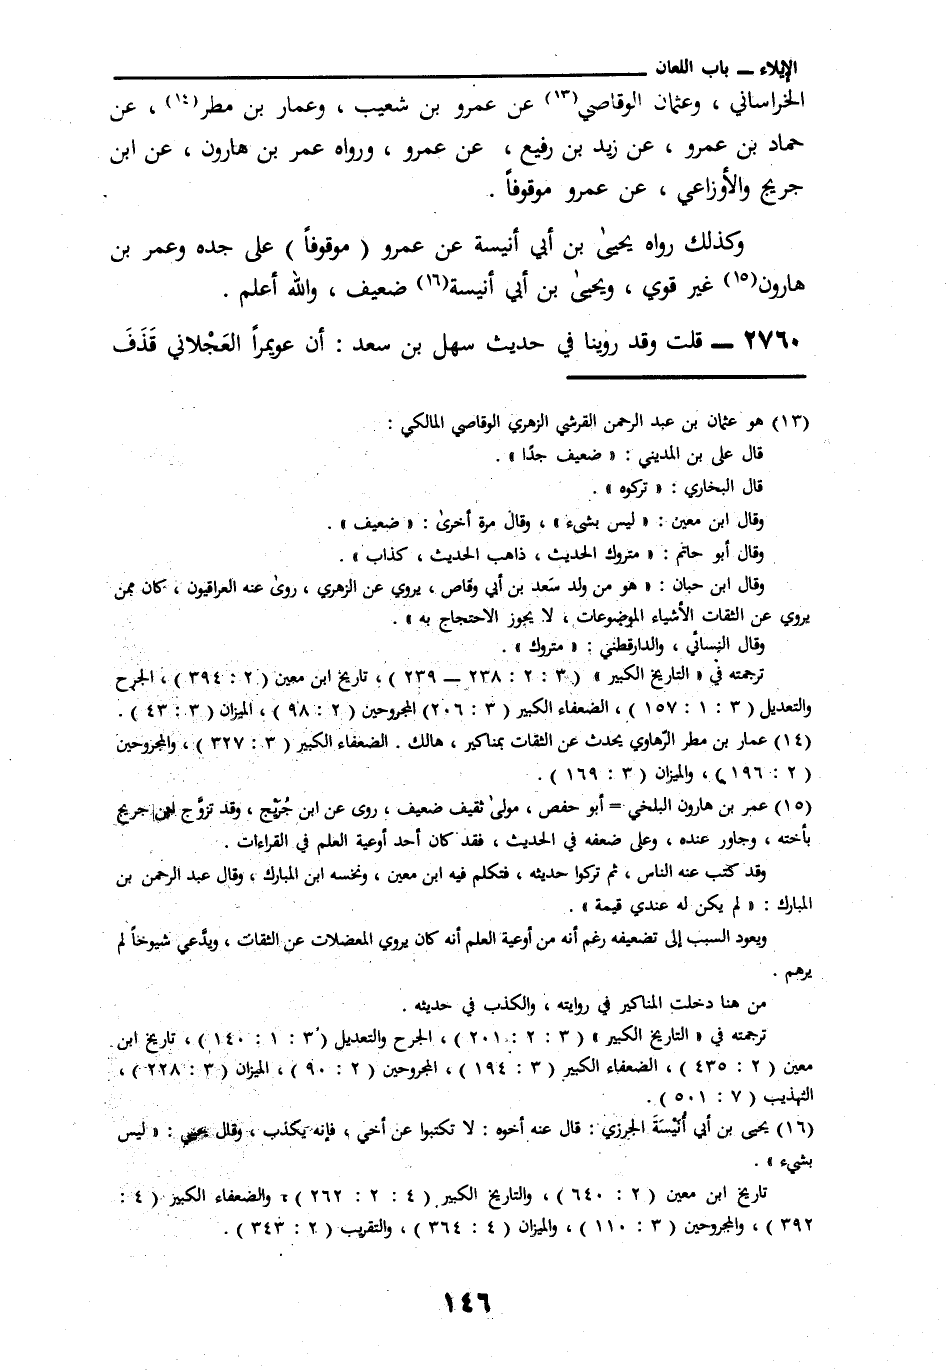 الإيلاء ــ باب اللعان
الخراساني ، وعثمان الوقاصي(١٣) عن عمرو بن شعيب ، وعمار بن مطر(١٤) ، عن
حماد بن عمرو ، عن زيد بن رفيع ، عن عمرو ، ورواه عمر بن هارون ، عن ابن
جريج والأوزاعي ، عن عمرو موقوفاً .
وكذلك رواه يحيىٰ بن أبي أنيسة عن عمرو ( موقوفاً ) على جده وعمر بن
هارون(١٥) غير قوي ، ويحيىٰ بن أبي أنيسة(١٦) ضعيف ، والله أعلم .
٢٧٦٠ ــ قلت وقد روينا في حديث سهل بن سعد : أن عويمراً العَجْلاني قَذَفَ
(١٣) هو عثمان بن عبد الرحمن القرشي الزهري الوقاصي المالكي :
قال على بن المديني : « ضعيف جدًا » .
قال البخاري : « تركوه » .
وقال ابن معين : « ليس بشىء » ، وقال مرة أخرىٰ : « ضعيف » .
وقال أبو حاتم : « متروك الحديث ، ذاهب الحديث ، كذاب » .
وقال ابن حبان : « هو من ولد سَعد بن أبي وقاص ، يروي عن الزهري ، روىٰ عنه العراقيون ، كان ممن
يروي عن الثقات الأشياء الموضوعات ، لا يجوز الاحتجاج به » .
وقال النسائي ، والدارقطني : « متروك » .
ترجمته في « التاريخ الكبير » ( ٣ : ٢ : ٢٣٨ ــ ٢٣٩ ) ، تاريخ ابن معين ( ٢ : ٣٩٤ ) ، الجرح
والتعديل ( ٣ : ١ : ١٥٧ ) ، الضعفاء الكبير ( ٣ : ٢٠٦) المجروحين ( ٢ : ٩٨ ) ، الميزان ( ٣ : ٤٣ ) .
(١٤) عمار بن مطر الرّهاوي يحدث عن الثقات بمناكير ، هالك . الضعفاء الكبير ( ٣ : ٣٢٧ ) ، والمجروحين
( ٢ : ١٩٦ ) ، والميزان ( ٣ : ١٦٩ ) .
(١٥) عمر بن هارون البلخي = أبو حفص ، مولىٰ ثقيف ضعيف ، روى عن ابن جُرَيْج ، وقد تزوَّج ابن جريج
بأخته ، وجاور عنده ، وعلى ضعفه في الحديث ، فقد كان أحد أوعية العلم في القراءات .
وقد كتب عنه الناس ، ثم تركوا حديثه ، فتكلم فيه ابن معين ، ونخسه ابن المبارك ، وقال عبد الرحمن بن
المبارك : « لم يكن له عندي قيمة » .
ويعود السبب إلى تضعيفه رغم أنه من أوعية العلم أنه كان يروي المعضلات عن الثقات ، ويدَّعي شيوخاً لم
يرهم .
من هنا دخلت المناكير في روايته ، والكذب في حديثه .
ترجمته في « التاريخ الكبير » ( ٣ : ٢ : ٢٠١ ) ، الجرح والتعديل ( ٣ : ١ : ١٤٠ ) ، تاريخ ابن
معين ( ٢ : ٤٣٥ ) ، الضعفاء الكبير ( ٣ : ١٩٤ ) ، المجروحين ( ٢ : ٩٠ ) ، الميزان ( ٣ : ٢٢٨ ) ،
التهذيب ( ٧ : ٥٠١ ) .
(١٦) يحيى بن أبي أُنَيْسَةَ الجرزي : قال عنه أخوه : لا تكتبوا عن أخي ، فإنه يكذب ، وقال يحيى : « ليس
بشيء » .
تاريخ ابن معين ( ٢ : ٦٤٠ ) ، والتاريخ الكبير ( ٤ : ٢ : ٢٦٢ ) ، والضعفاء الكبير ( ٤ :
٣٩٢ ) ، والمجروحين ( ٣ : ١١٠ ) ، والميزان ( ٤ : ٣٦٤ ) ، والتقريب ( ٢ : ٣٤٣ ) .
١٤٦